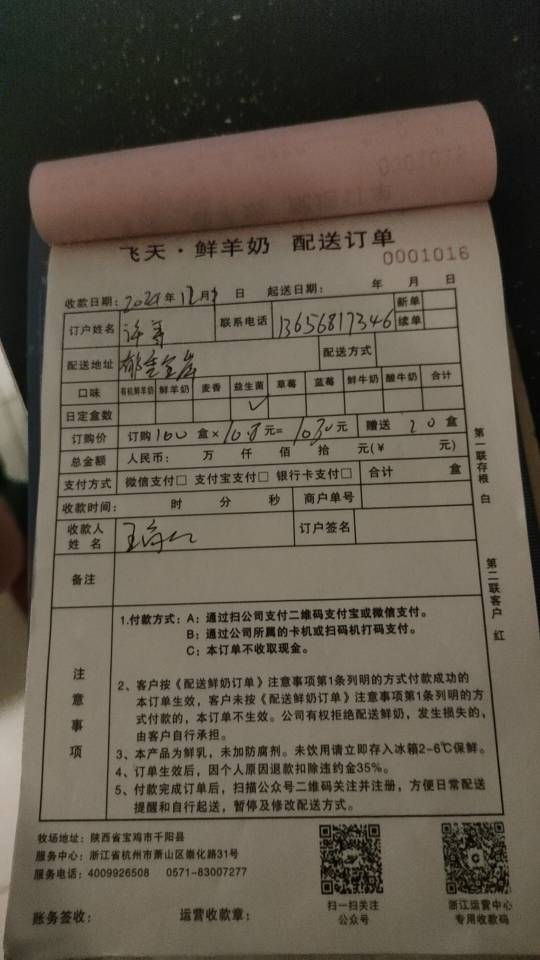 飞天·鲜羊奶 配送订单
0001016
收款日期: 2024年12月 日 起送日期: 年 月 日
订户姓名 许 联系电话 13656817346 新单
续单
配送地址 郁金 配送方式
口味 有机鲜羊奶 鲜羊奶 麦香 益生菌 草莓 蓝莓 鲜牛奶 酸牛奶 合计
日定盒数 ✓
订购价 订购100盒×10.8元=1080元 赠送 20盒
总金额 人民币: 万 仟 佰 拾 元(¥ 元)
支付方式 微信支付□ 支付宝支付□ 银行卡支付□ 合计 盒
收款时间: 时 分 秒 商户单号
收款人姓名 王 订户签名
备注
第一联存根 白
第二联客户 红
注意事项
1.付款方式: A: 通过扫公司支付二维码支付宝或微信支付。
B: 通过公司所属的卡机或扫码机打码支付。
C: 本订单不收取现金。
2、客户按《配送鲜奶订单》注意事项第1条列明的方式付款成功的
本订单生效，客户未按《配送鲜奶订单》注意事项第1条列明的方
式付款的，本订单不生效。公司有权拒绝配送鲜奶，发生损失的，
由客户自行承担。
3、本产品为鲜乳，未加防腐剂。未饮用请立即存入冰箱2-6℃保鲜。
4、订单生效后，因个人原因退款扣除违约金35%。
5、付款完成订单后，扫描公众号二维码关注并注册，方便日常配送
提醒和自行起送，暂停及修改配送方式。
牧场地址: 陕西省宝鸡市千阳县
服务中心: 浙江省杭州市萧山区崇化路31号
服务电话: 4009926508 0571-83007277
扫一扫关注
公众号
浙江运营中心
专用收款码
账务签收: 运营收款章: